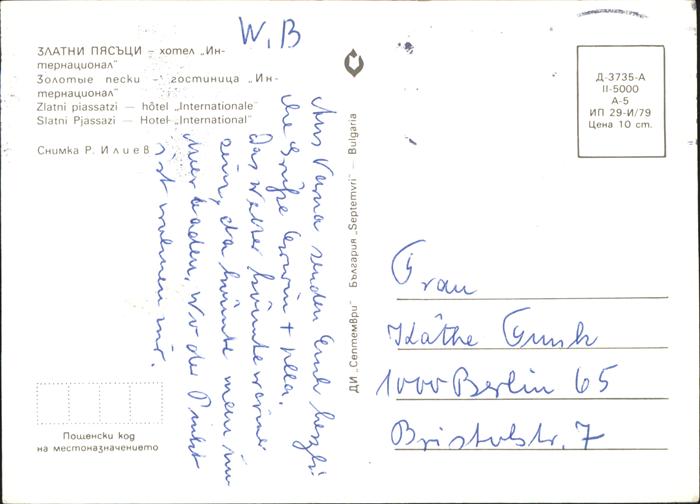 W. B
ЗЛАТНИ ПЯСЪЦИ – хотел „Ин-
тернационал"
Золотые пески – гостиница „Ин-
тернационал"
Zlatni piassatzi — hôtel „Internationale"
Slatni Pjassazi — Hotel „International"
Снимка Р. Илиев
Aus Varna senden Euch herzli-
che Grüße Erwin +
Das Wetter könnte wärmer
sein, da könnte man im
Meer baden, wo der Punkt
ist wohnen wir.
Пощенски код
на местоназначението
ДИ „Септември" България „Septemvri" — Bulgaria
Д-3735-А
II-5000
А-5
ИП 29-И/79
Цена 10 ст.
Frau
Käthe
1000 Berlin 65
Bristolstr. 7